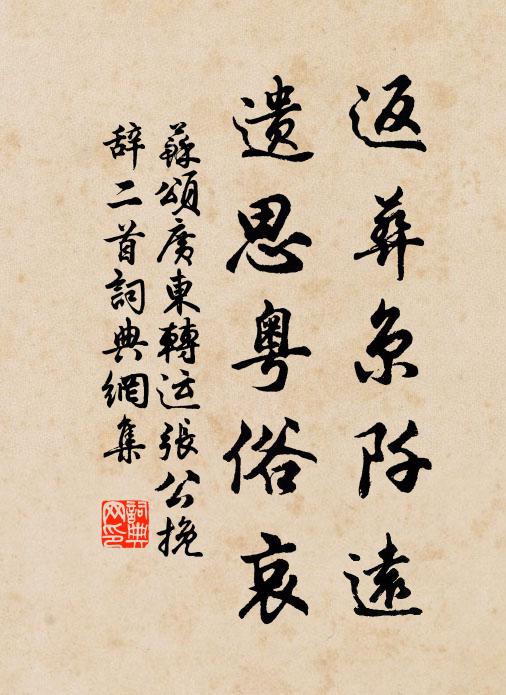 返葬京阡遠
遺思粵俗哀
蘇頌廣東轉运張公挽
辞二首詞典網集
詞典网印